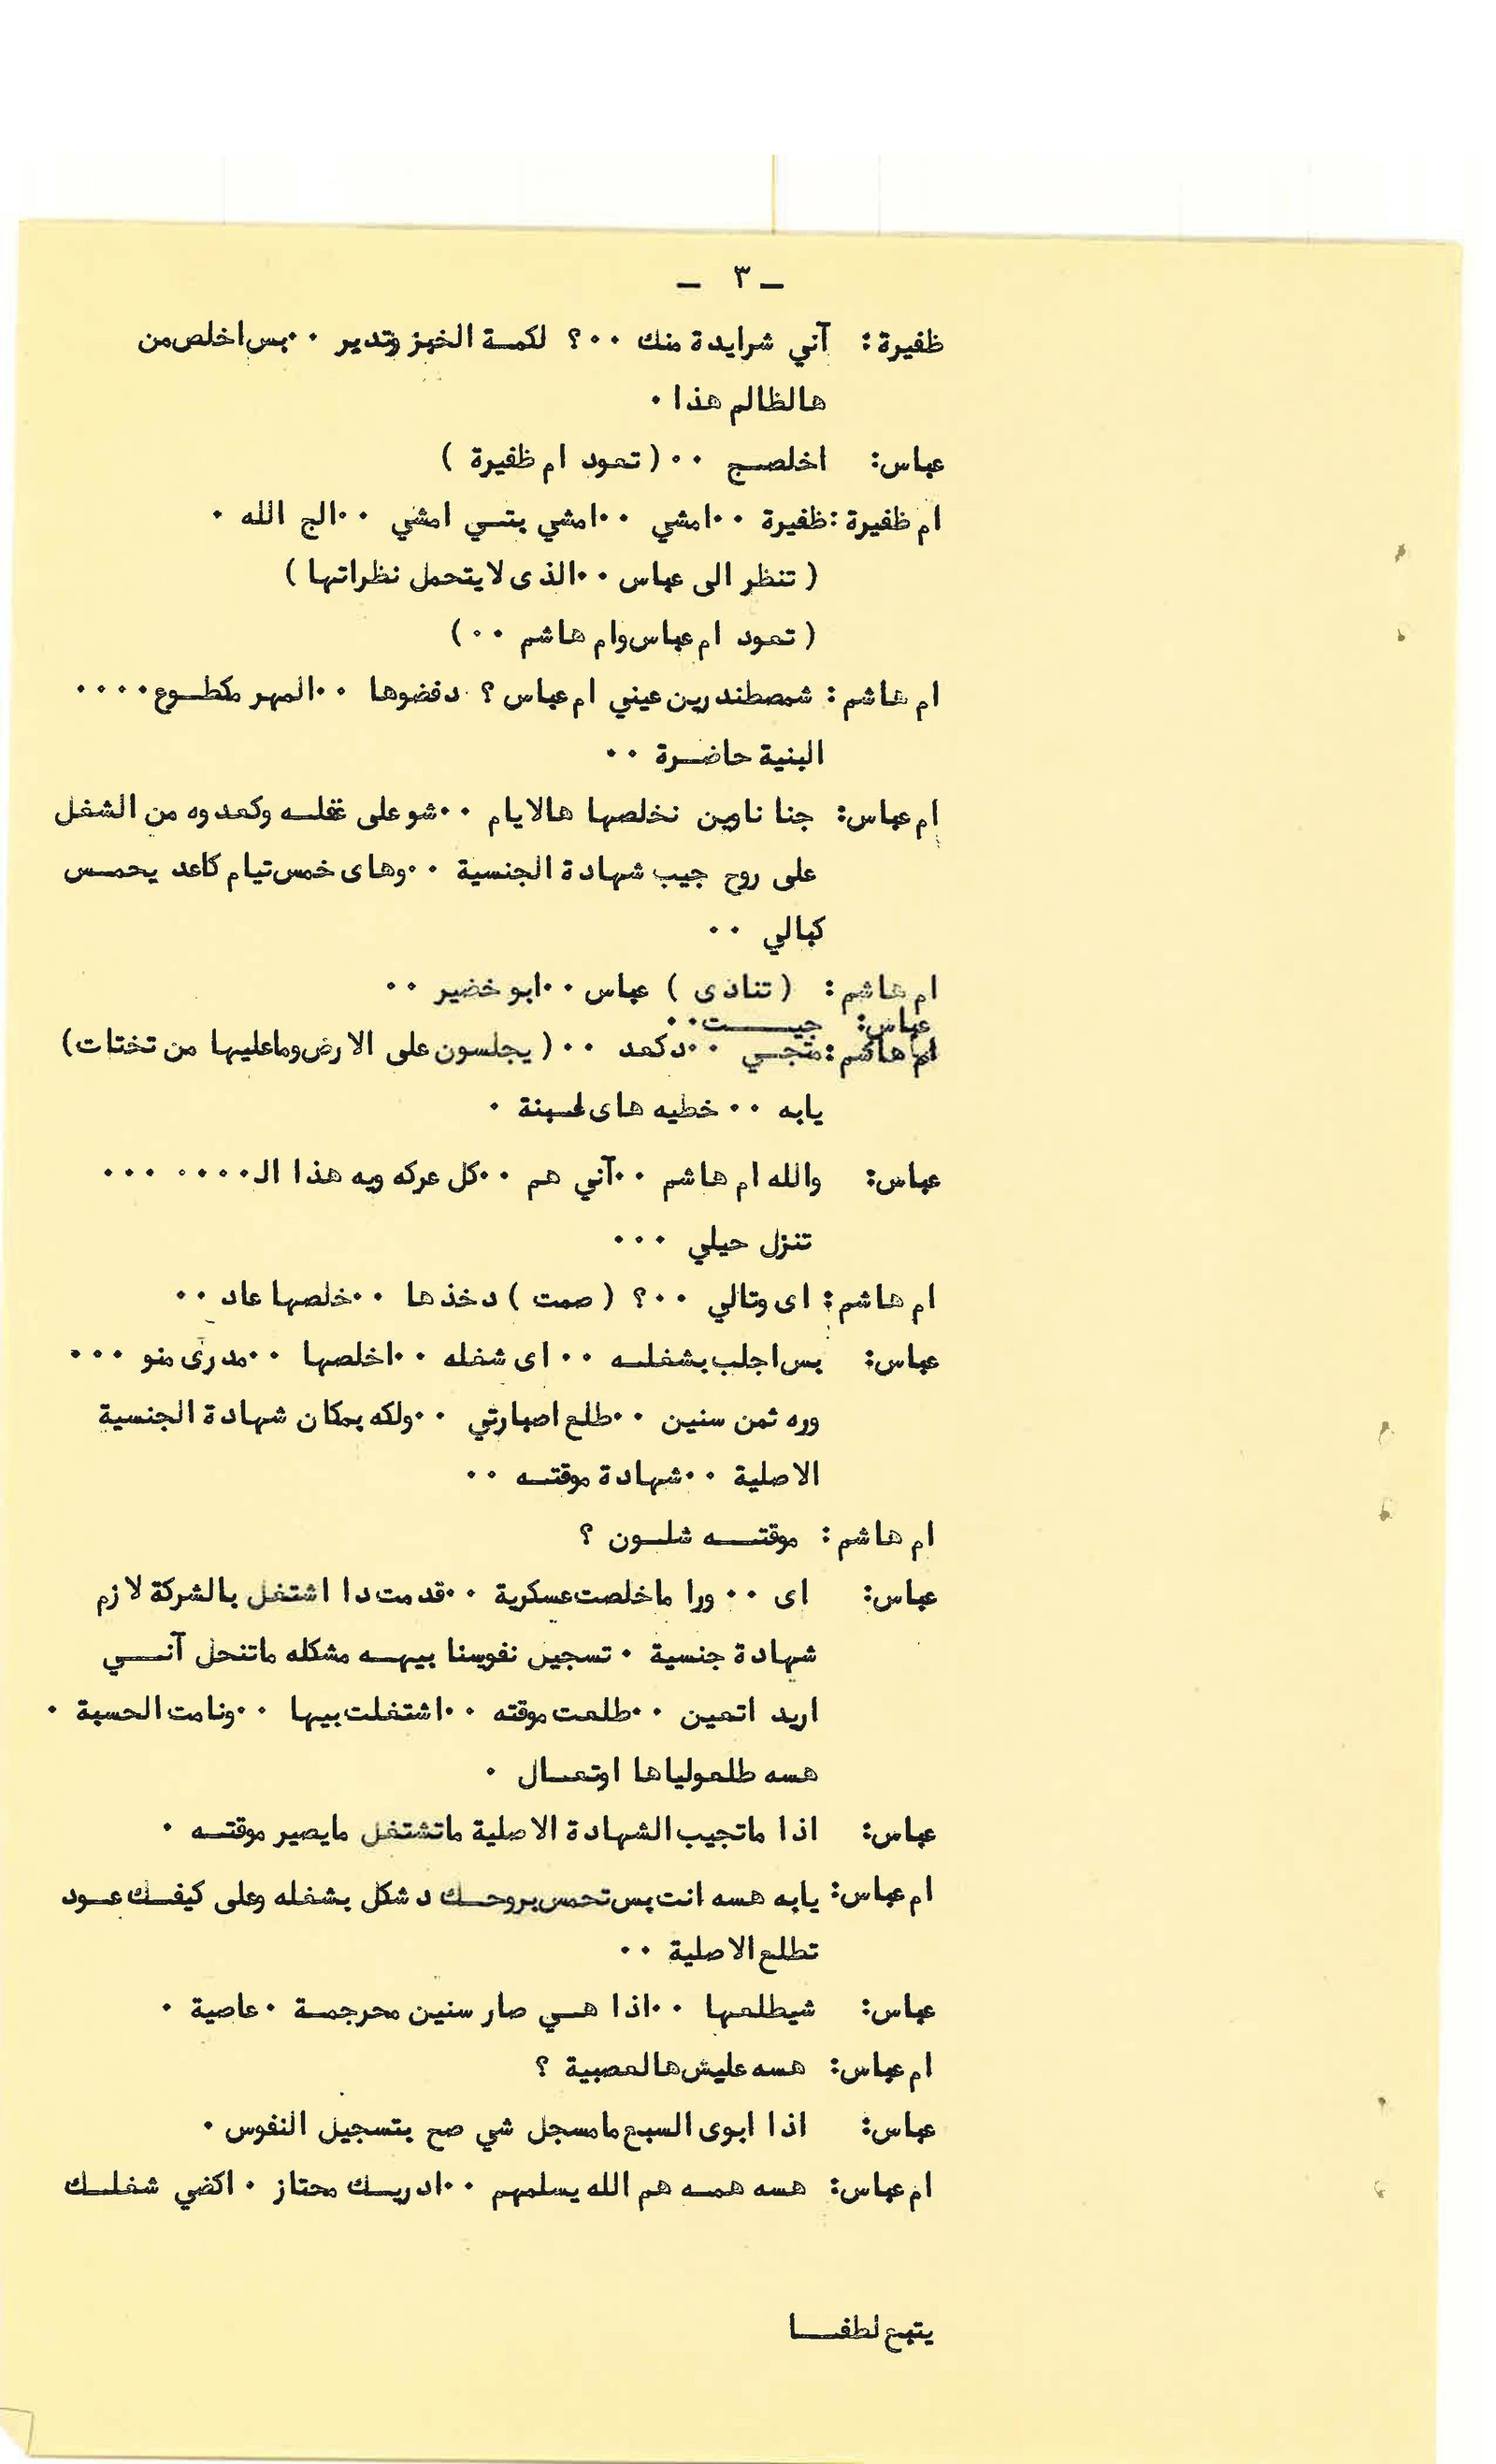 — ٣ —
ظفيرة: آني شرايدة منك ٠٠؟ لكمة الخبز وتدير ٠٠بس اخلص من
هالظالم هذا ٠
عباس: اخلصج ٠٠ (تعود ام ظفيرة )
ام ظفيرة :ظفيرة ٠٠امشي ٠٠امشي بتي امشي ٠٠الج الله ٠
( تنظر الى عباس ٠٠الذى لا يتحمل نظراتها )
( تعود ام عباس وام هاشم ٠٠)
ام هاشم : شمصطندرين عيني ام عباس ؟ دفضوها ٠٠المهر مكطوع٠٠٠٠
البنية حاضرة ٠٠
ام عباس: جنا ناوين نخلصها هالايام ٠٠شو على غفله وكعدوه من الشغل
على روح جيب شهادة الجنسية ٠٠وهاى خمس تيام كاعد يحمس
كبالي ٠٠
ام هاشم : ( تنادى ) عباس ٠٠ابو خضير ٠٠
عباس: جيت٠٠
ام هاشم :متجي ٠٠دكعد ٠٠ ( يجلسون على الارض وماعليها من تختات)
يابه ٠٠ خطيه هاى لبنية ٠
عباس: والله ام هاشم ٠٠آني هم ٠٠كل عركه ويه هذا الـ٠٠٠٠ ٠٠٠
تنزل حيلي ٠٠٠
ام هاشم : اى وتالي ٠٠؟ ( صمت ) دخذها ٠٠خلصها عاد ٠٠
عباس: بس اجلب بشغله ٠٠ اى شغله ٠٠اخلصها ٠٠مدرى منو ٠٠٠
وره ثمن سنين ٠٠طلع اضبارتي ٠٠ولكه بمكان شهادة الجنسية
الاصلية ٠٠شهادة موقته ٠٠
ام هاشم : موقته شلون ؟
عباس: اى ٠٠ ورا ماخلصت عسكرية ٠٠قدمت دا اشتغل بالشركة لازم
شهادة جنسية ٠ تسجيل نفوسنا بيه مشكله ماتنحل آني
اريد اتعين ٠٠طلعت موقته ٠٠اشتغلت بيها ٠٠ونامت الحسبة ٠
هسه طلعولياها اوتعال ٠
عباس: اذا ماتجيب الشهادة الاصلية ماتشتغل مايصير موقته ٠
ام عباس: يابه هسه انت بس تحمس بروحك دشكل بشغله وعلى كيفك عود
تطلع الاصلية ٠٠
عباس: شيطلعها ٠٠اذا هي صار سنين محرجمة ٠عاصية ٠
ام عباس: هسه عليش هالعصبية ؟
عباس: اذا ابوى السبع مامسجل شي صح بتسجيل النفوس ٠
ام عباس: هسه همه هم الله يسلمهم ٠٠ادريك محتاز ٠ اكضي شغلك
يتبع لطفا